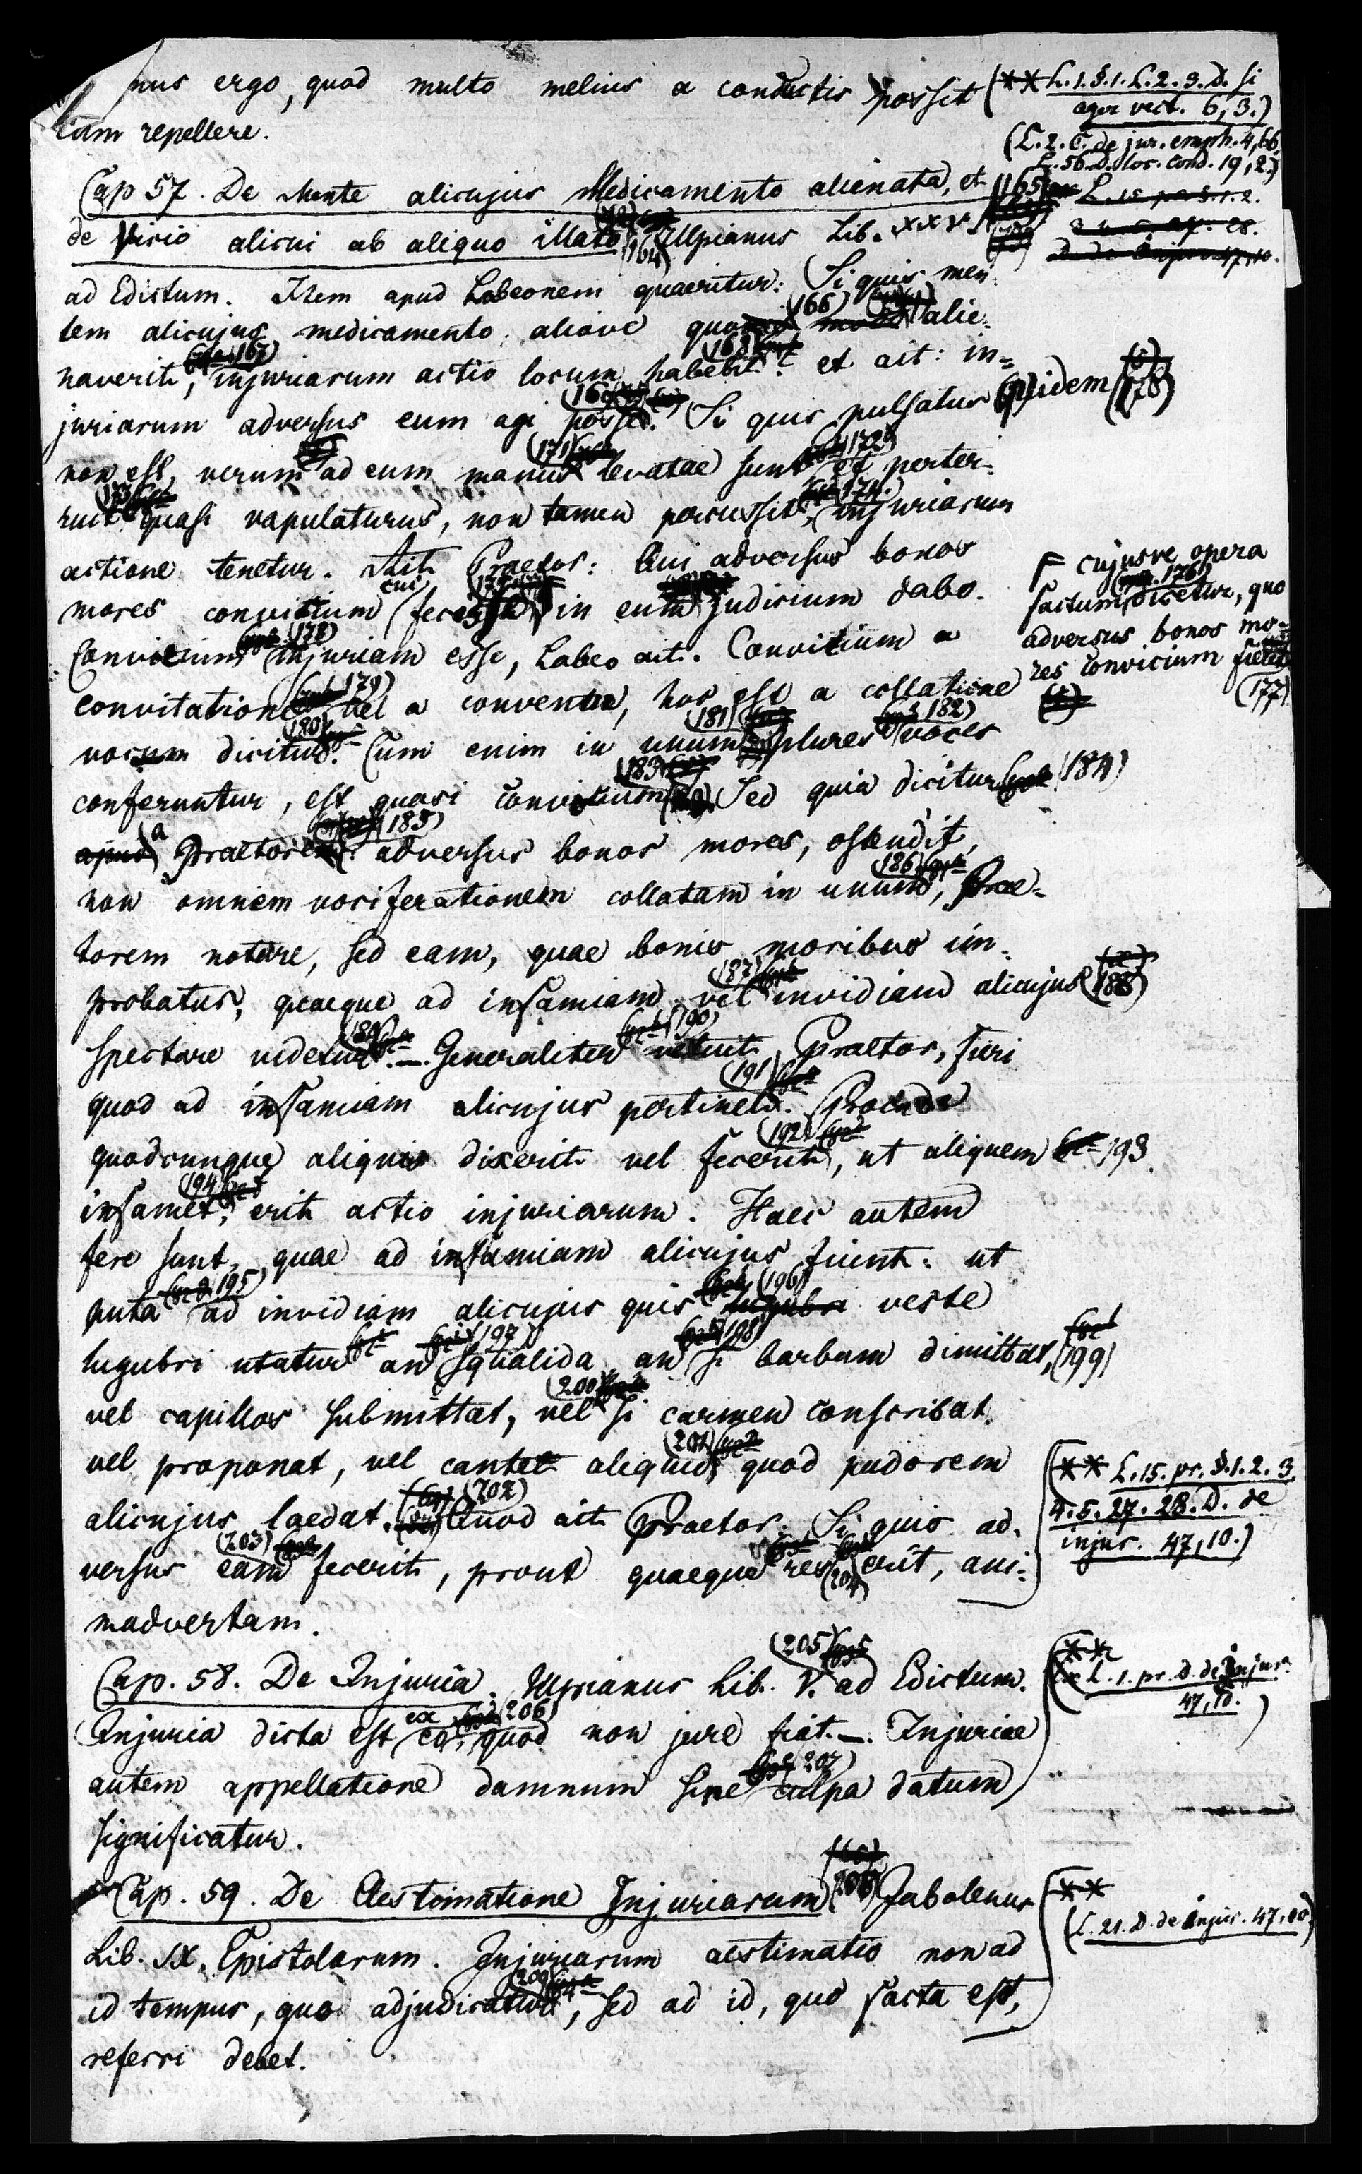 nus ergo, quod multo melius a conductis possit (** L. 1. §. 1. L. 2. 3. D. si
ager vect. 6, 3.)
tiam repellere.
(L. 2. C. de jur. emph. 4, 66.
L. 56. D. loc. cond. 19, 2.)
Cap 57. De Mente alicujus Medicamento alienata, et 165)
L. 15. pr. §. 1. 2.
de Vicio alicui ab aliquo illato (164) Ulpianus Lib. XXV.
D. de Injur. 47, 10.
ad Edictum. Item apud Labeonem quaeritur: Si quis men
tem alicujus medicamento aliove quo (166) alie-
naverit, (167) injuriarum actio locum habebit? (168) et ait: in-
juriarum adversus eum agi posse. (169) Si quis pulsatus quidem (170)
non est, verum ad eum manus (171) levatae sunt (172) et perter-
ruit (173) quasi vapulaturus, non tamen percussit, (174) injuriarum
actione tenetur. Ait Praetor: Qui adversus bonos
mores convitium cui fecisse (175) in eum Judicium dabo.
F cujusve opera
factum (176) dicetur, quo
adversus bonos mo-
res convicium fieret
(177)
Convicium (178) injuriam esse, Labeo ait. Convitium a
convitatione (179) vel a conventu, hoc est a collatione
vocum dicitur. (180) Cum enim in unum (181) plures (182) voces
conferuntur, est quasi convotium (183) Sed quia dicitur (184)
a Praetore (185) adversus bonos mores, ostendit,
non omnem vociferationem collatam in unum, (186) Prae-
torem notare, sed eam, quae bonis moribus im-
probatur, quaeque ad infamiam vel (187) invidiam alicujus (188)
spectare videtur. (189) — Generaliter (190) vetuit Praetor, fieri
quod ad infamiam alicujus pertinet. (191) Proinde
quodcunque aliquis dixerit vel fecerit, (192) ut aliquem 193
infamet, (194) erit actio injuriarum. Haec autem
fere sunt, quae ad infamiam alicujus fiunt: ut
puta (195) ad invidiam alicujus quis (196) lugubri veste
lugubri utatur an (197) squalida, an (198) si barbam dimittat, (199)
vel capillos submittat, vel (200) si carmen conscribat,
vel proponat, vel cantet aliquid (201) quod pudorem
alicujus laedat. (202) Quod ait Praetor. Si quis ad-
(** L. 15. pr. §. 1. 2. 3.
4. 5. 27. 28. D. de
injur. 47, 10.)
versus eam (203) fecerit, prout quaeque res (204) erit, ani-
madvertam.
Cap. 58. De Injuria. Ulpianus Lib. V. (205) ad Edictum.
(** L. 1. pr. D. de Injur.
47, 10.)
Injuria dicta est ex eo, (206) quod non jure fiat. — Injuriae
autem appellatione damnum sine (207) culpa datum
significatur.
Cap. 59. De Aestimatione Injuriarum (208) Jabolenus
**
(L. 21. D. de Injur. 47, 10)
Lib. IX. Epistolarum. Injuriarum aestimatio non ad
id tempus, quo adjudicatur, (209) sed ad id, quo facta est,
referri debet.